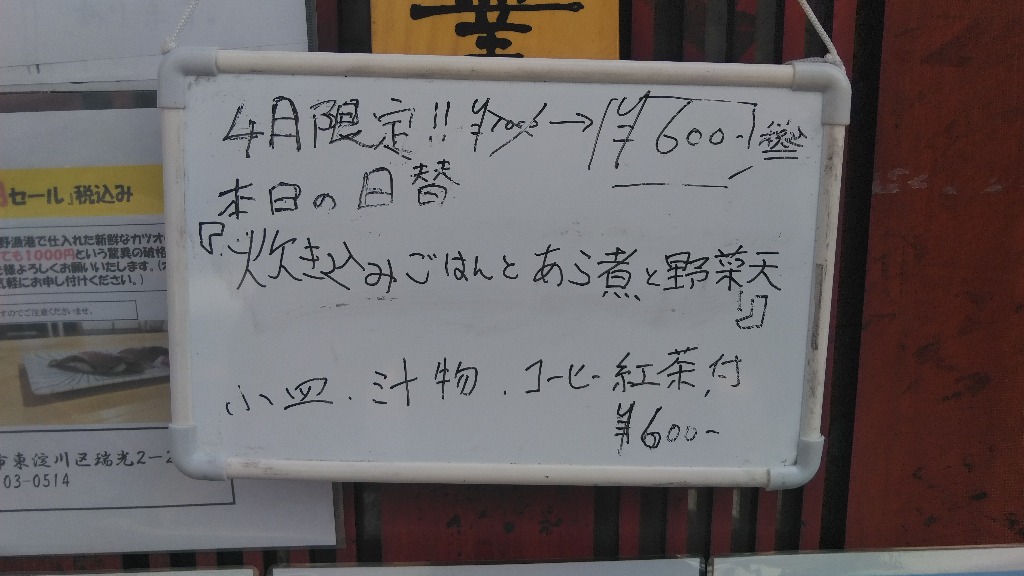 華
4月限定!! ¥700 → ¥600- 税込
本日の日替
『炊き込みごはんとあら煮と野菜天』
小皿、汁物、コーヒー紅茶付
¥600-
セール」税込み
野漁港で仕入れた新鮮なカツオ
ても1000円という驚異の破格
様よろしくお願いいたします。
気軽にお申し付けください。)
すのでご注意くださいませ。
市東淀川区瑞光2-2
03-0514